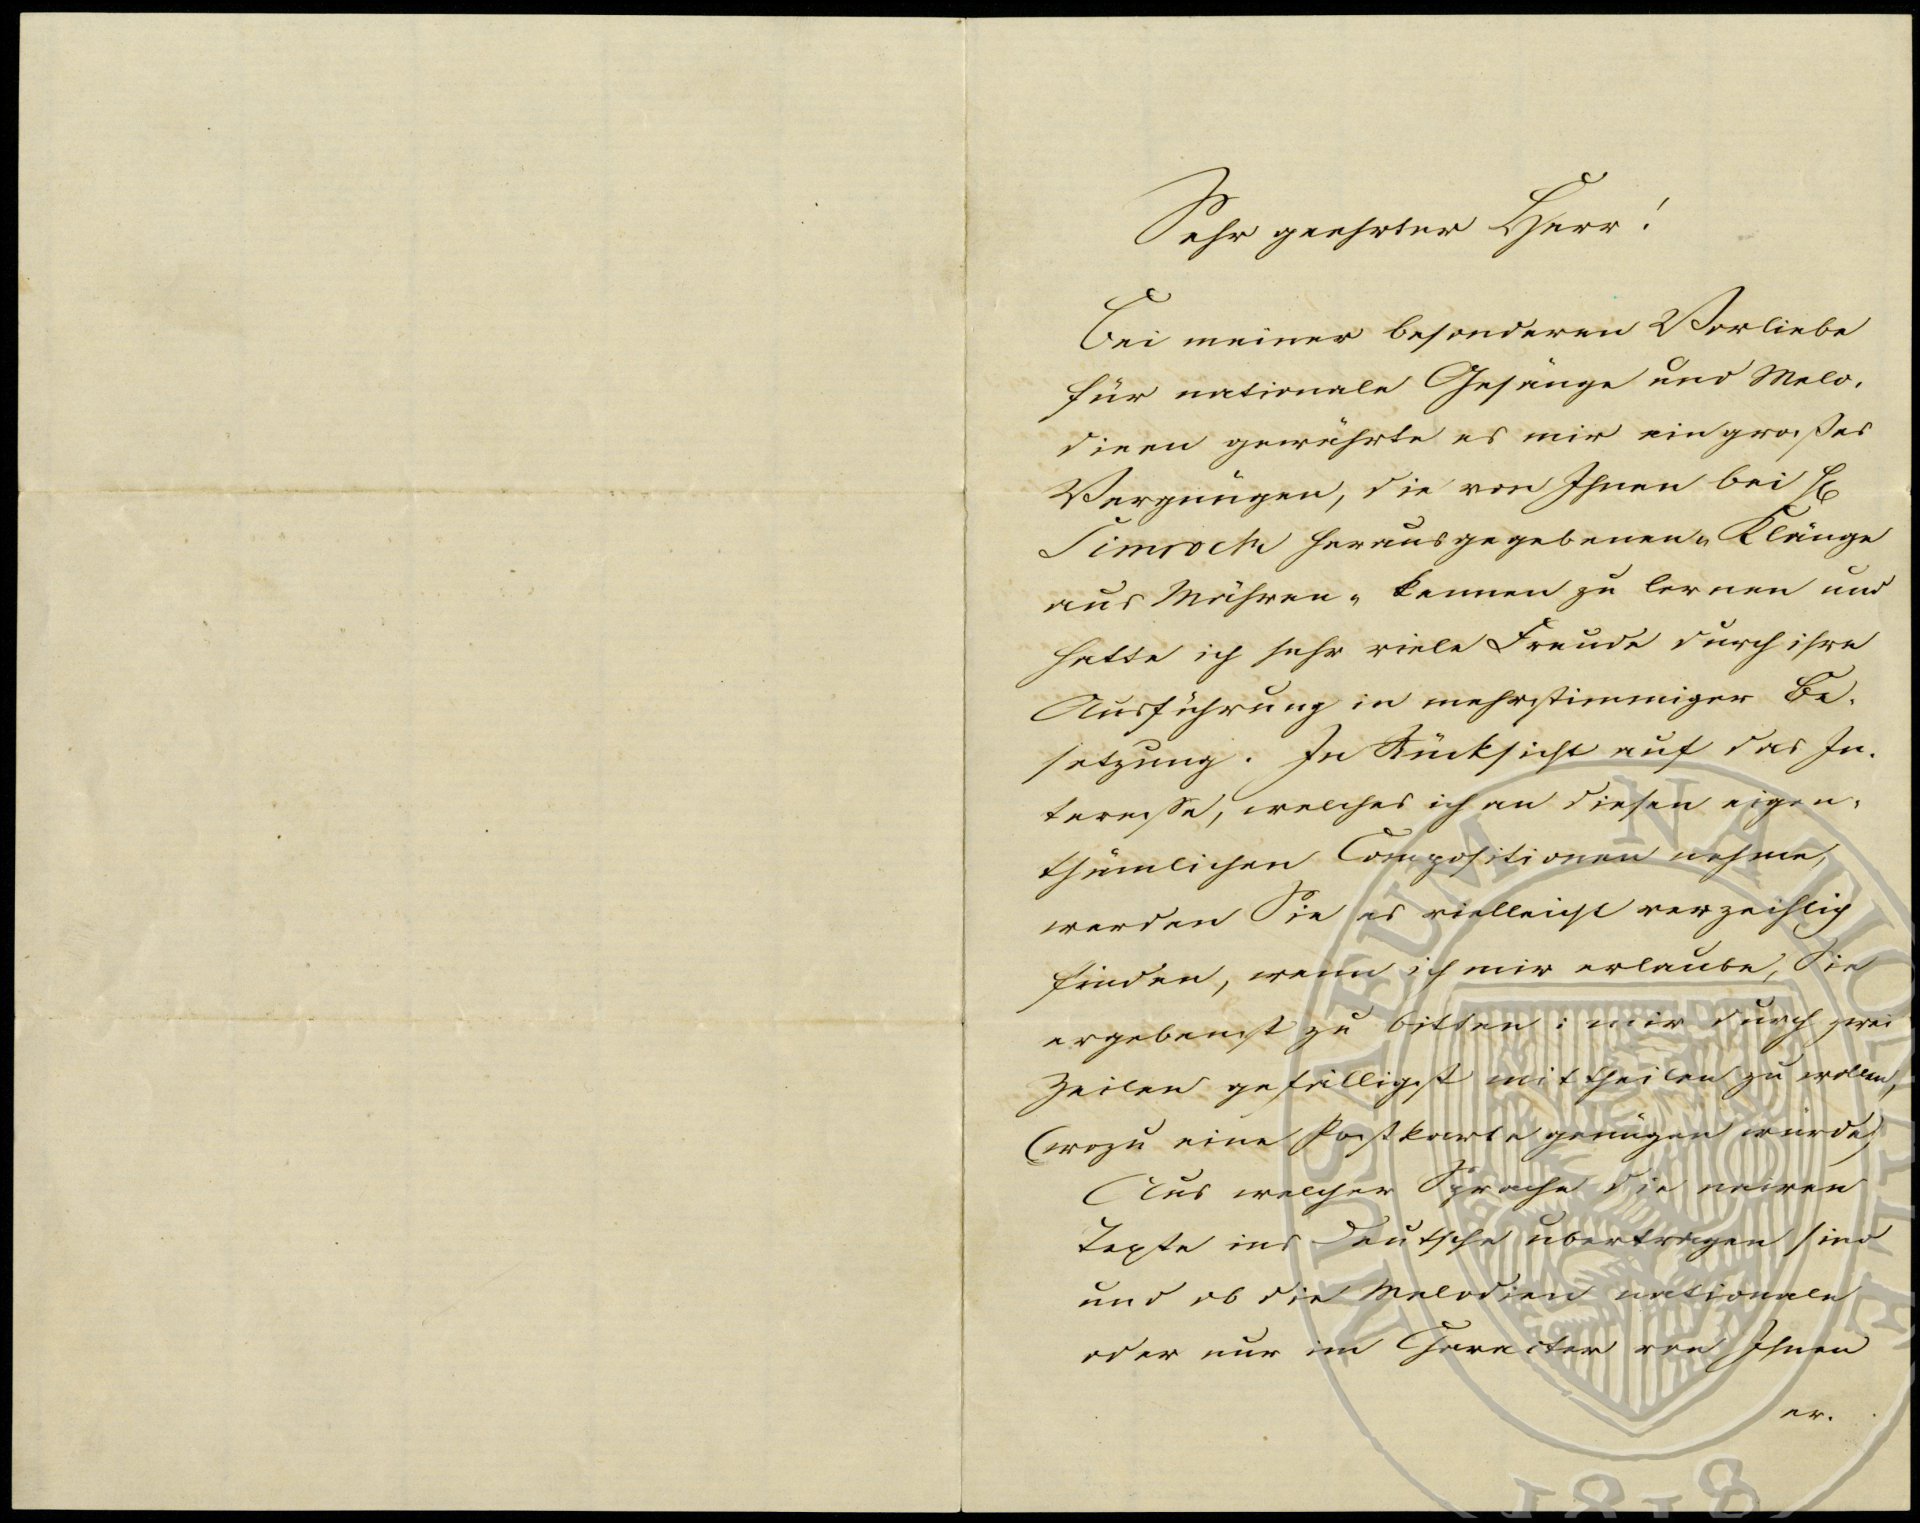 Sehr geehrter Herr!
Bei meiner besonderen Vorliebe
für nationale Gesänge und Melo-
dieen gewährte es mir ein großes
Vergnügen, die von Ihnen bei H
Simrock herausgegebenen „Klänge
aus Mähren“ kennen zu lernen und
hatte ich sehr viele Freude durch ihre
Ausführung in mehrstimmiger Be-
setzung. In Rücksicht auf das In-
teresse, welches ich an diesen eigen-
thümlichen Compositionen nehme,
werden Sie es vielleicht verzeihlich
finden, wenn ich mir erlaube, Sie
ergebenst zu bitten: mir durch zwei
Zeilen gefälligst mittheilen zu wollen,
(wozu eine Postkarte genügen würde)
Aus welcher Sprache die
Texte ins Deutsche übertragen sind
und ob die Melodien nationale
oder nur im Character von Ihnen
er.
MUSAEUM NATIONALE
1818